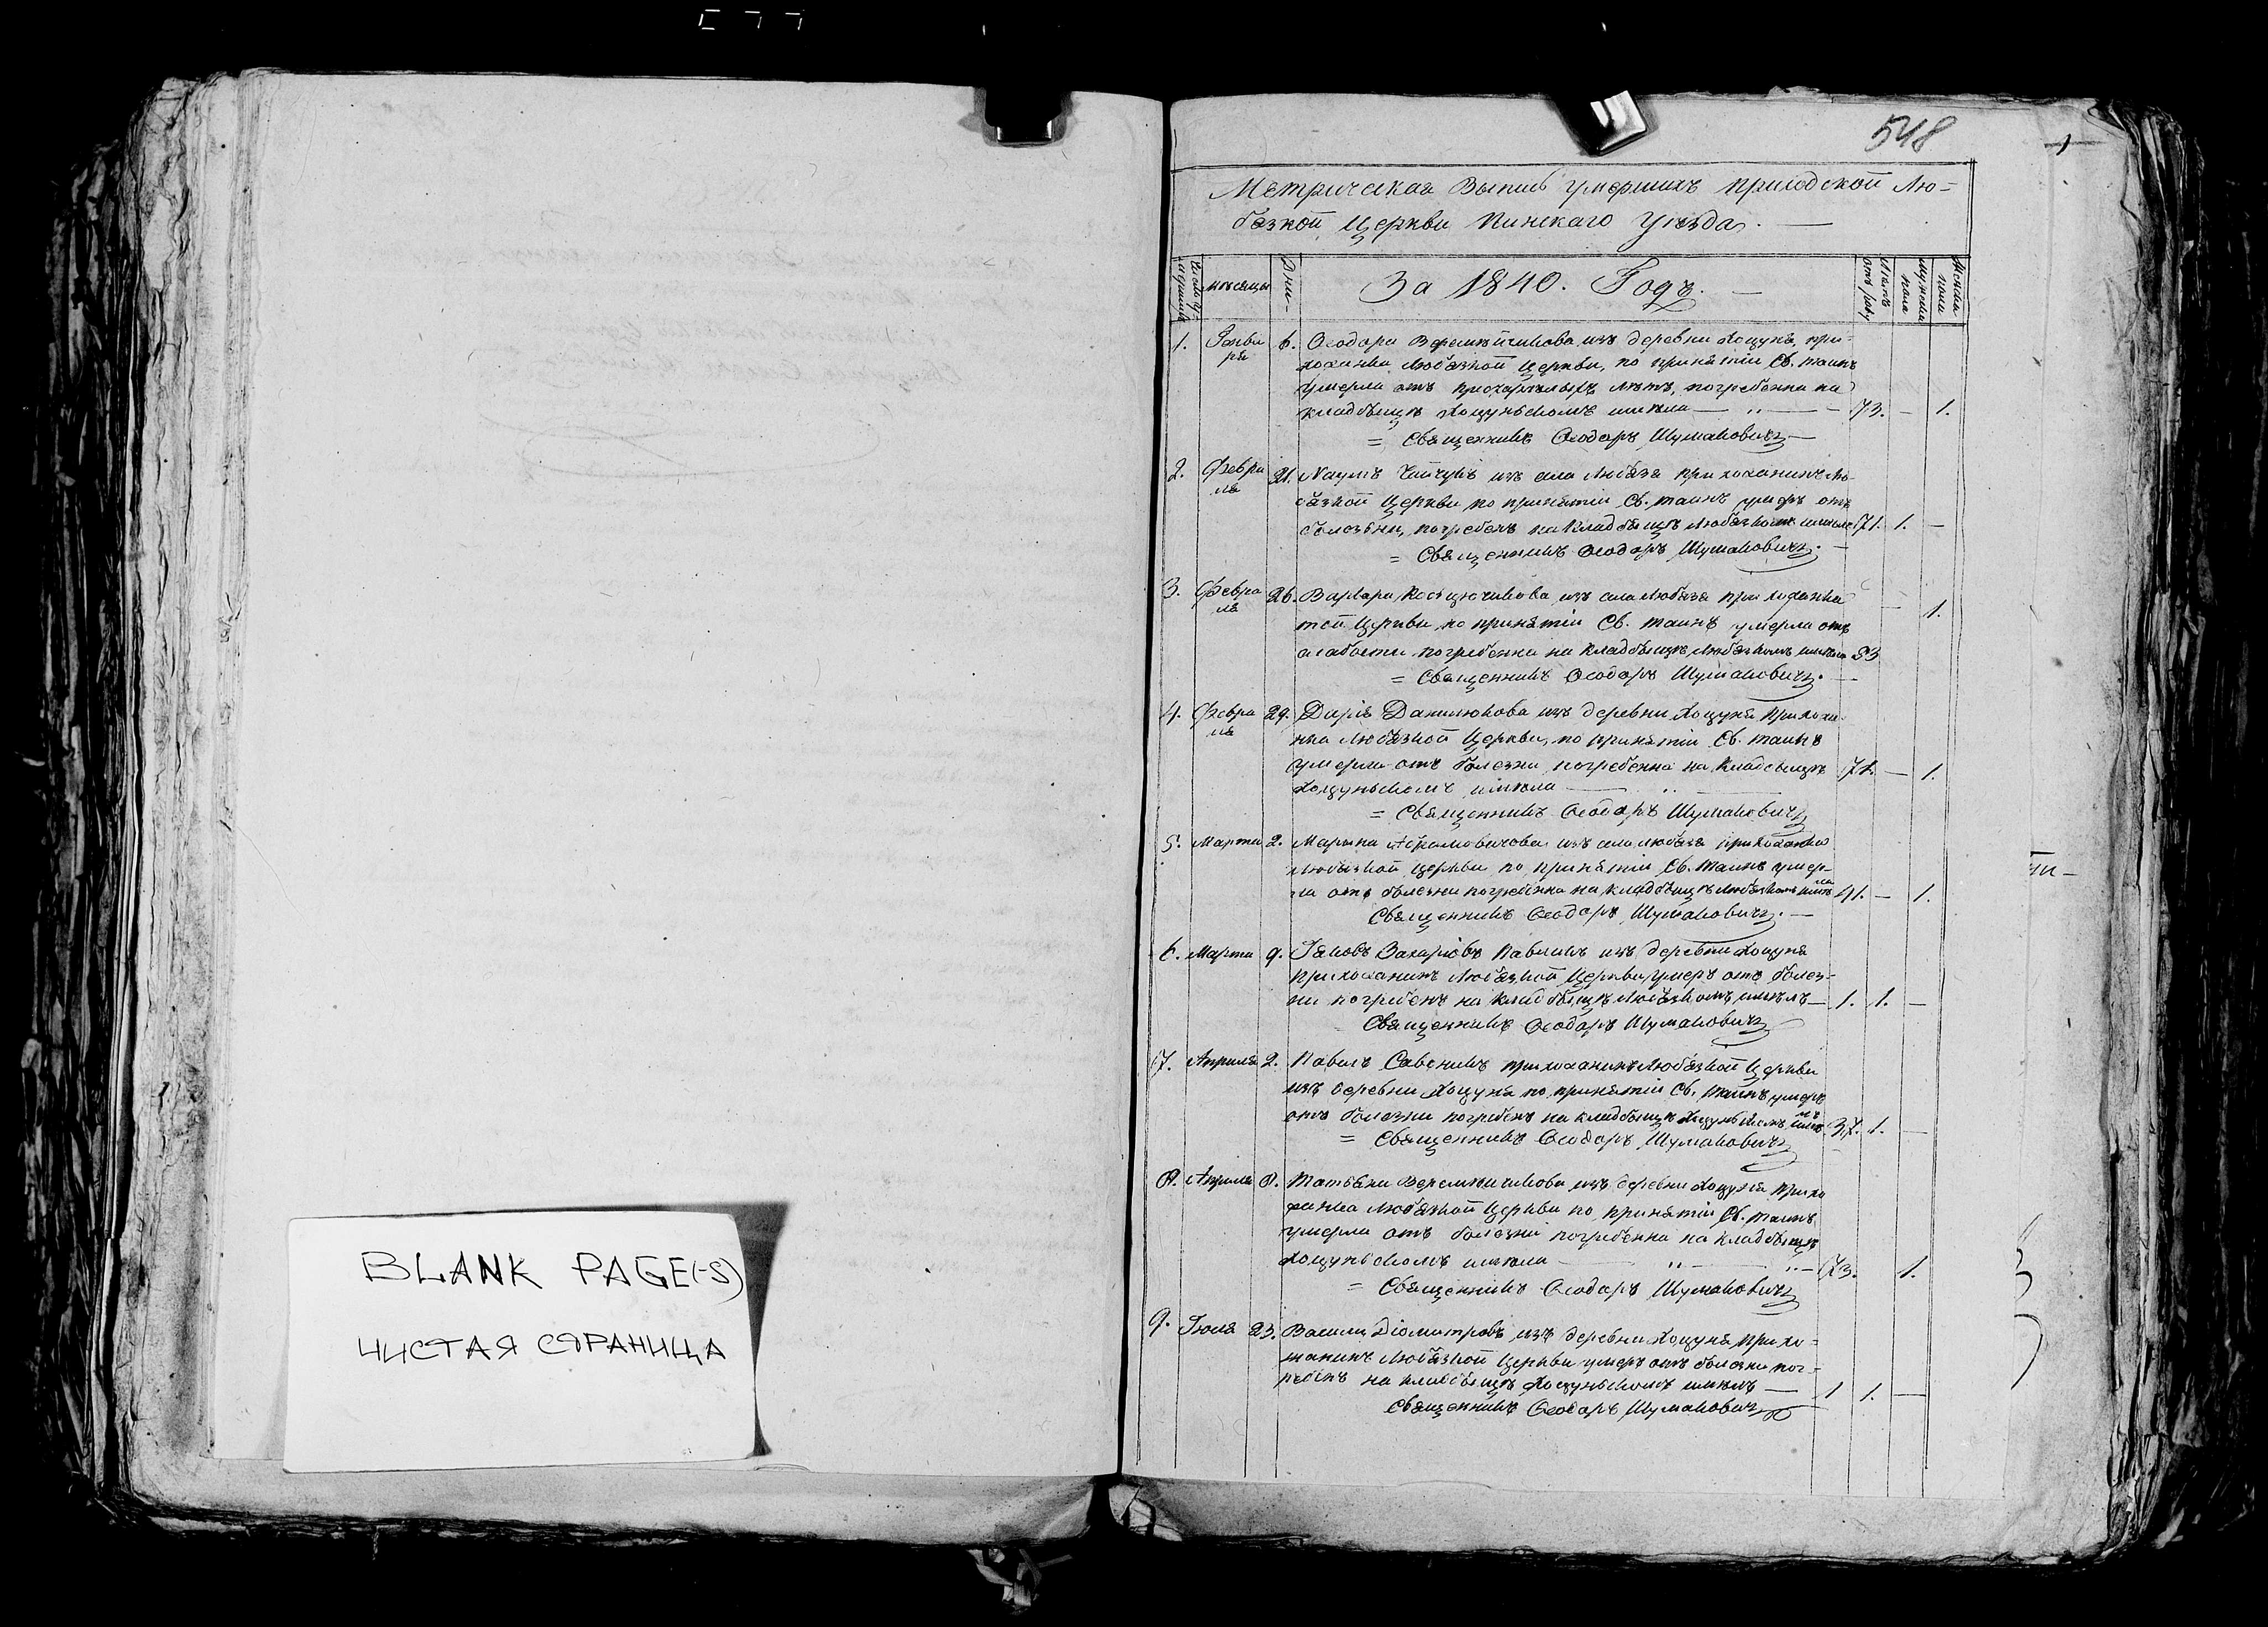 BLANK PAGE(-S)
ЧИСТАЯ СТРАНИЦА
548
Метрическая Выпись умершихъ приходской Лю-
бязкой Церкви Пинскаго Уѣзда. —
мѣсяцы
Дни
За 1840. Годъ. —
Лѣтъ отъ роду
Мужеска пола
Женска пола
1. Генва
ря
6. Феодора Веремѣйчикова изъ деревни Хоцуня, при-
хожанка Любязкой Церкви, по принятіи Св. таинъ
умерла отъ престарѣлыхъ лѣтъ, погребенна на
кладбищѣ Хоцунскомъ — 73. — 1.
= Священникъ Феодоръ Шумаковичъ —
2. Февра
ля
21. Наумъ изъ села Любязя прихожанинъ Лю-
бязкой Церкви по принятіи Св. таинъ умеръ отъ
болѣзни, погребенъ на кладбищѣ Любязкомъ 71. 1. —
= Священникъ Феодоръ Шумаковичъ. —
3. Февра
ля
26. Варвара Костючикова изъ села Любязя прихожанка
той Церкви по принятіи Св. таинъ умерла отъ — 1.
слабости погребенна на кладбищѣ Любязкомъ 53
= Священникъ Феодоръ Шумаковичъ. —
4. Февра
ля
29. Дарія Данилюкова изъ деревни Хоцуня прихожа-
нка Любязкой Церкви, по принятіи Св. таинъ
умерла отъ болезни погребенна на кладбищѣ — 1.
Хоцунскомъ —
= Священникъ Феодоръ Шумаковичъ
5. Марта 2. Марына Абрамовичова изъ села Любязя прихожанка
Любязкой Церкви по принятіи Св. таинъ умер-
ла отъ болезни погребенна на кладбищѣ Любязкомъ 41. — 1.
Священникъ Феодоръ Шумаковичъ. —
6. Марта 9. Іаковъ Захаріовъ Павликъ изъ деревни Хоцуня
прихожанинъ Любязкой Церкви, умеръ отъ болез-
ни погребенъ на кладбищѣ Любязкомъ — 1. 1. —
Священникъ Феодоръ Шумаковичъ
7. Апреля 2. Павелъ Савеникъ прихожанинъ Любязкой Церкви
изъ деревни Хоцуня по принятіи Св. таинъ умеръ
отъ болезни погребенъ на кладбищѣ Хоцунскомъ 37. 1. —
= Священникъ Феодоръ Шумаковичъ
8. Апреля 8. Татьяна Веремѣичикова изъ деревни Хоцуня прихо
жанка Любязкой Церкви по принятіи Св. таинъ
умерла отъ болезни погребенна на кладбищѣ
Хоцунскомъ — 73. 1.
= Священникъ Феодоръ Шумаковичъ
9. Іюля 23. Василій Діомитровъ изъ деревни Хоцуня, прихо-
жанинъ Любязкой Церкви умеръ отъ болезни пог-
ребенъ на кладбищѣ Хоцунскомъ — 1 1. —
Священникъ Феодоръ Шумаковичъ